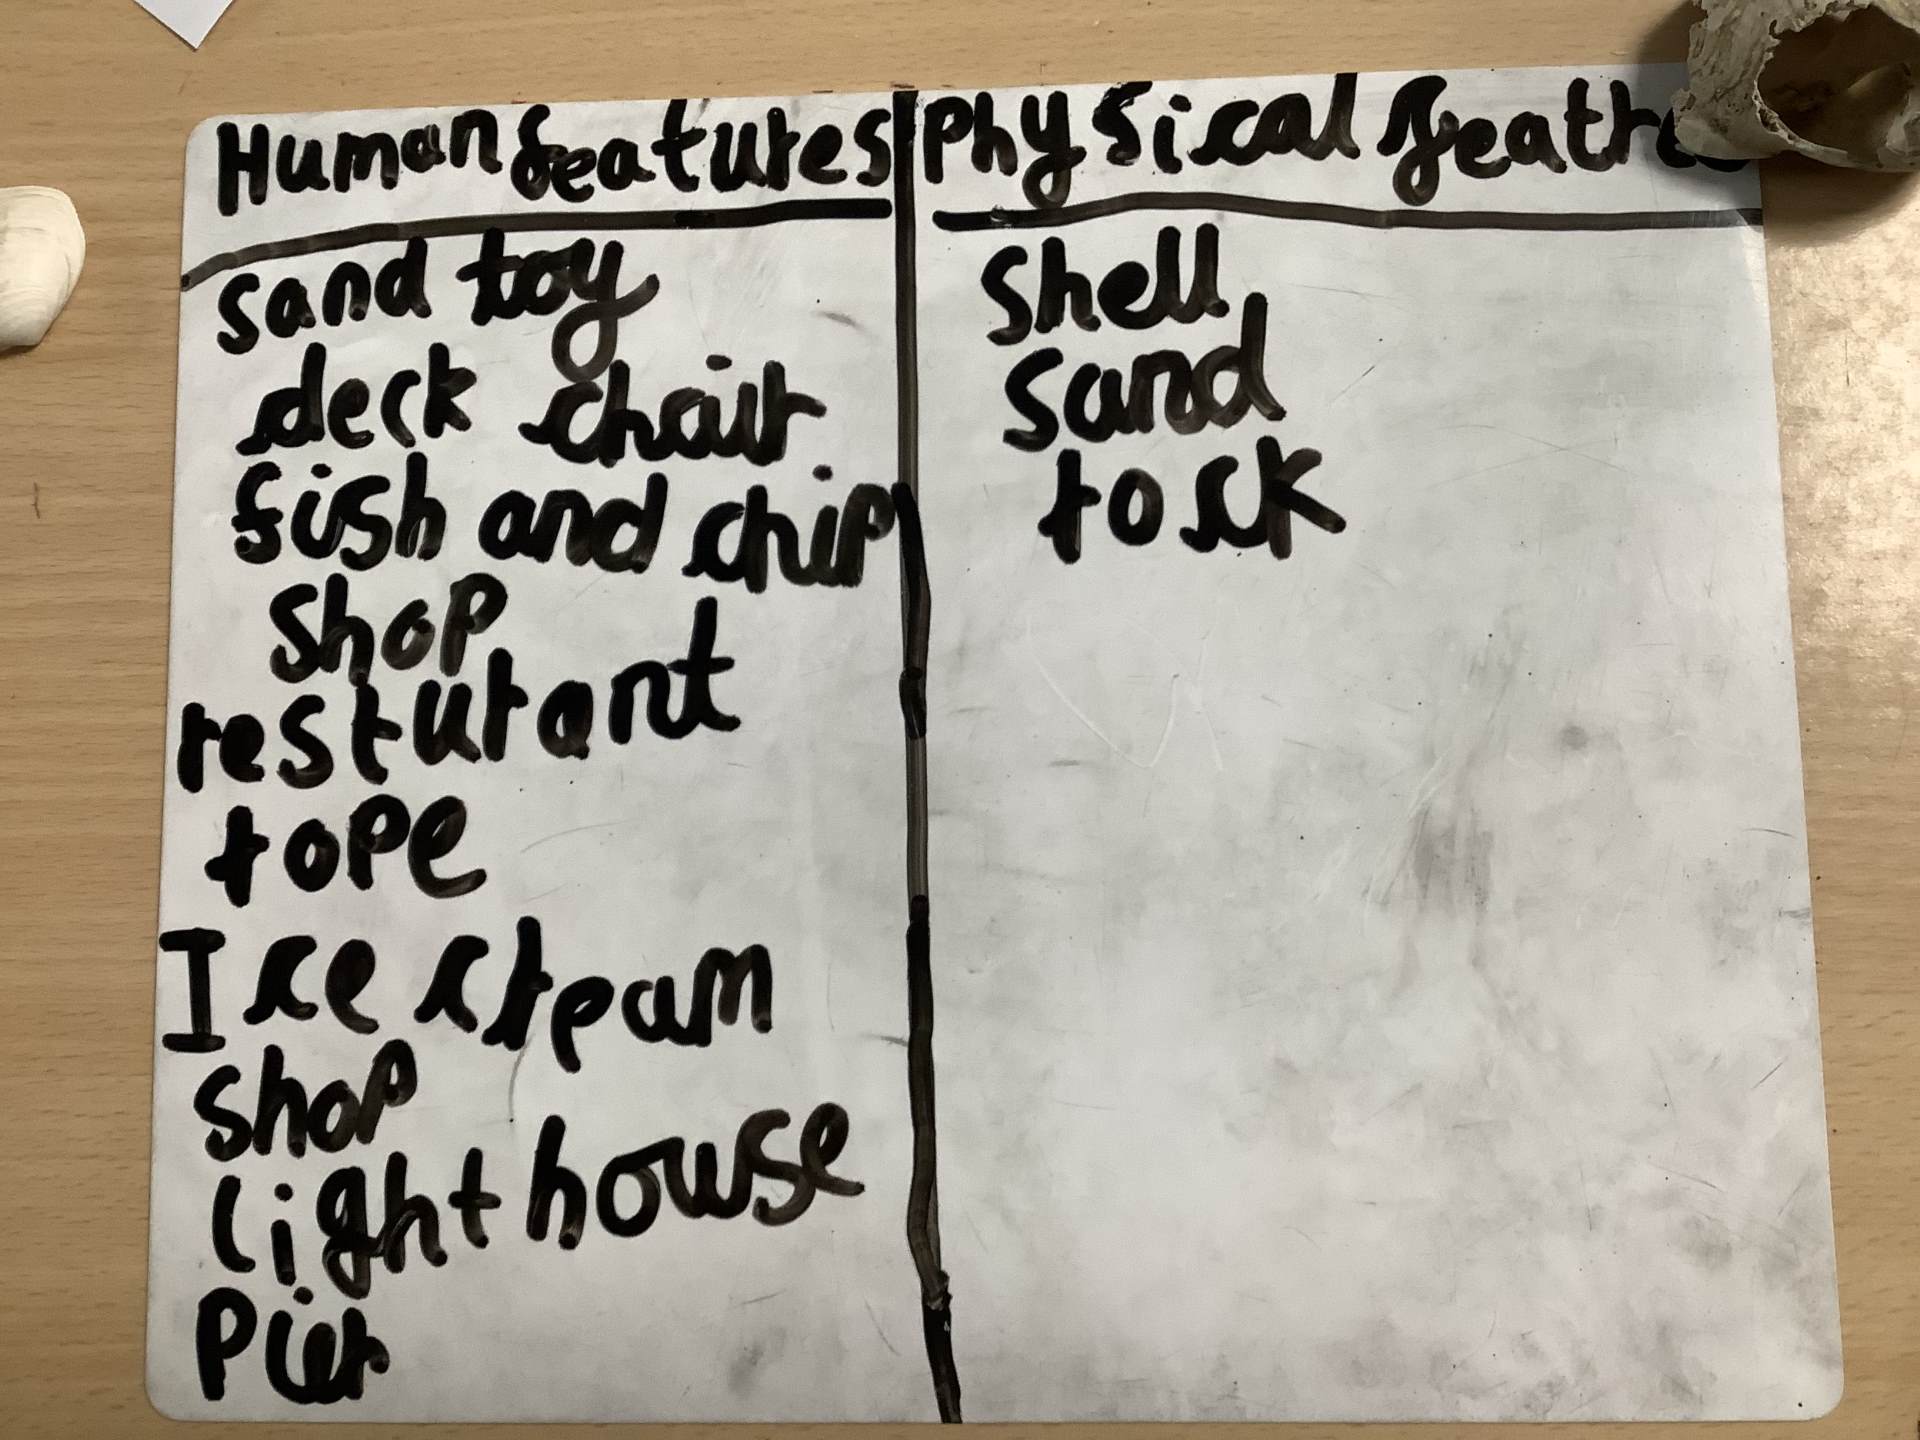 Human features
sand toy
deck chair
fish and chip
shop
resturant
rope
Ice cream
shop
light house
Pier
Physical featre
shell
sand
rock